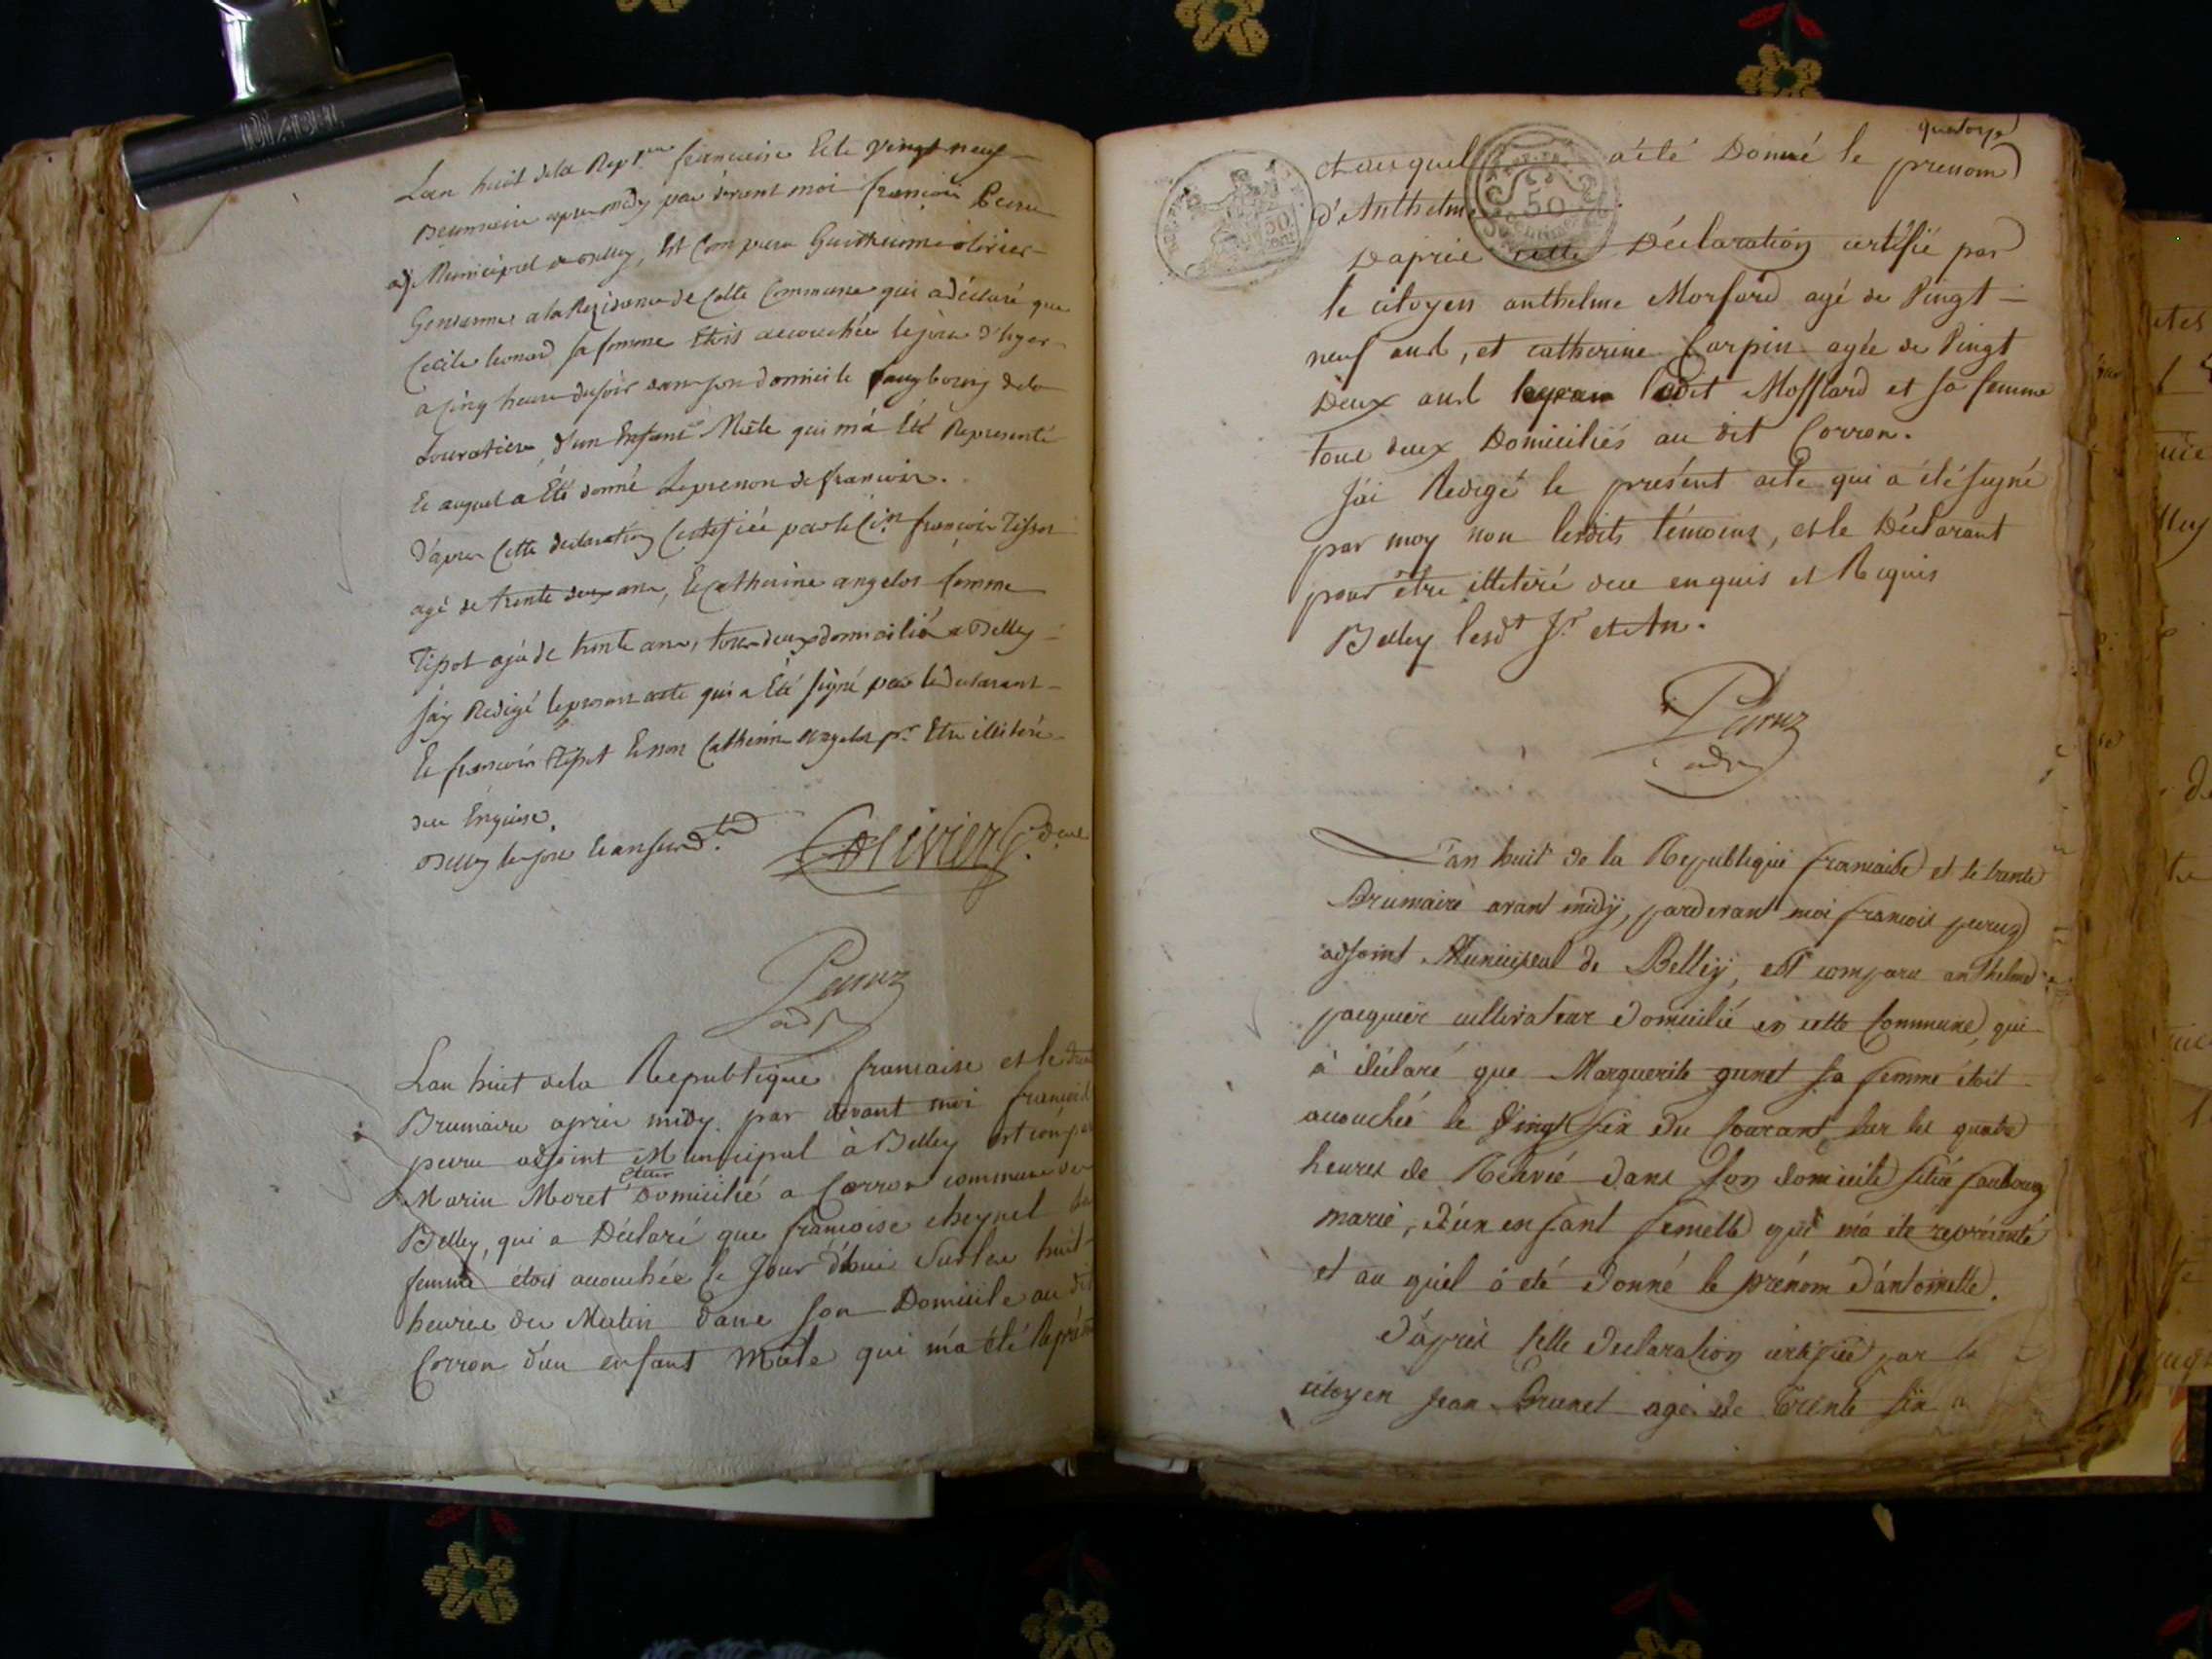 Lan huit dela Rep.que francaise Et le vingt neuf
Brumaire apres midy par devant moi francois Peru
adj Municipal de Belley, Est Comparu Guilheaume olivier
Gendarme a la Residence de Cette Commune qui a déclaré que
Cecile leonard sa femme Etois accouchée le jour d'hyer
a cinq heure du soir dans son domicile faugbourg dela
d'un Enfant Mâle qui m'a Eté Representé
Et auquel a Eté donné Le prenon de francois.
D'apres Cette declaration Certifiée par le C.en francois Tissot
agé de trente deux ans, Et Catherine angelot femme
Tissot agée de trente ans, tous deux domiciliés a Belley
J'ay Redigé le present acte qui a Eté signé par le declarant
Et francois Tissot Et non Catherine angelot pr. Etre illiterée
due Enquise.
Belley les jour Et an susd.ts
olivier
Peruz
adj
Lan huit dela Republique francaise et le
Brumaire après midy par devant moi francois
peru adjoint Municipal à Belley est
Marin Moret Domicilié a Corron commune de
Belley, qui a Déclaré que francoise cheynel sa
femme étois accouchée le Jour d'hui Sur les huit
heures du Matin dans son Domicile au dit
Corron d'un enfant Mâle qui m'a été
quatorze
et auquel a été Donné le prenom
d'Anthelme
50
50
Dapriès cette Déclaration certifié par
le citoyen anthelme Morfard agé de Vingt
neuf ans, et catherine Carpin agée de Vingt
Deux ans ledit Mossard et sa femme
tous deux Domiciliés au dit Corron.
J'ai Redigé le présent acte qui a été signé
par moy non lesdits témoins, et le Déclarant
pour être illetiré due enquis et Requis
Belley lesdt Jr. et An.
Peruz
adj
L'an huit de la Republique francaise et le trente
Brumaire avant midÿ, pardevant moi francois peruz
adjoint Municipal de Belleÿ, est comparu anthelme
jacquier cultivateur Domicilié en cette Commune, qui
à déclaré que Marguerite gunet sa femme étoit
acouchée le Vingt six du Courant, sur les quatre
heures de Relevée dans son domicile sitüé faubourg
marié, d'ün enfant femelle qui m'a été représenté
et au quel à été Donné le prénom d'antoinette.
D'après telle declaration certifiée par le
citoyen Jean Brunet agé de trente six